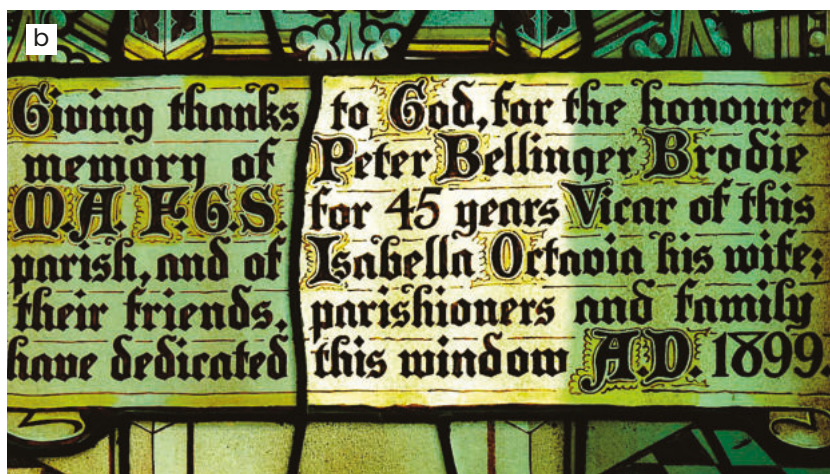 b
Giving thanks to God, for the honoured
memory of Peter Bellinger Brodie
M.A. F.G.S. for 45 years Vicar of this
parish, and of Isabella Octavia his wife;
their friends, parishioners and family
have dedicated this window A.D. 1899.